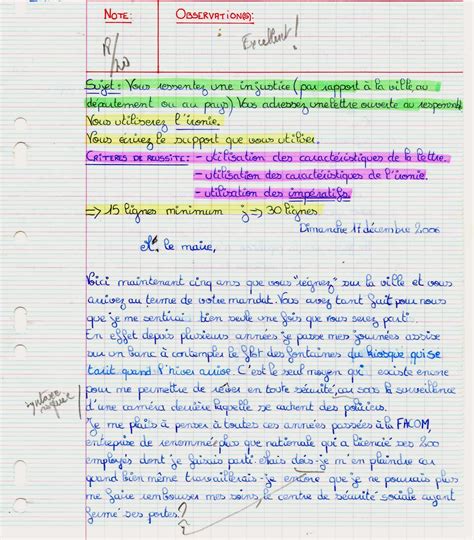 NOTE:
OBSERVATION(S):
Excellent!
/20
Sujet: Vous ressentez une injustice (par rapport à la ville, au
département ou au pays) Vous adressez une lettre ouverte au responsable
Vous utiliserez l'ironie.
Vous écrirez le support que vous utilisez.
CRITÈRES DE RÉUSSITE: - utilisation des caractéristiques de la lettre.
- utilisation des caractéristiques de l'ironie.
- utilisation des impératifs
=> 15 lignes minimum => 30 lignes
Dimanche 17 décembre 2006
M. le maire,
Voici maintenant cinq ans que vous "régnez" sur la ville et vous
arrivez au terme de votre mandat. Vous avez tant fait pour nous
que je me sentirai bien seule une fois que vous serez parti.
En effet depuis plusieurs années je passe mes journées assise
sur un banc à contempler le flot des fontaines du kiosque qui se
tarit quand l'hiver arrive. C'est le seul moyen qui existe encore
pour me permettre de rêver en toute sécurité, sous la surveillance
d'une caméra derrière laquelle se cachent des policiers.
syntaxe
Je me plais à penser à toutes ces années passées à la FACOM,
entreprise de renommée plus que nationale qui a licencié ses 200
employés dont je faisais partie. Mais dois-je m'en plaindre car
quand bien même travaillerais-je encore que je ne pourrais plus
me faire rembourser mes soins, le centre de sécurité sociale ayant
fermé ses portes?